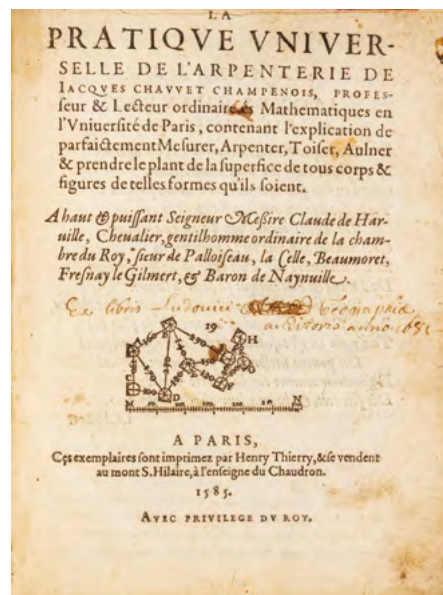 LA
PRATIQVE VNIVER-
SELLE DE L'ARPENTERIE DE
IACQVES CHAVVET CHAMPENOIS, PROFES-
seur & Lecteur ordinaire és Mathematiques en
l'Vniuersité de Paris, contenant l'explication de
parfaictement Mesurer, Arpenter, Toiser, Aulner
& prendre le plant de la superfice de tous corps &
figures de telles formes qu'ils soient.
A haut & puissant Seigneur Messire Claude de Har-
uille, Cheualier, gentilhomme ordinaire de la cham-
bre du Roy, sieur de Palloiseau, la Celle, Beaumoret,
Fresnay le Gilmert, & Baron de Naynuille.
Ex libris Ludouici
anno
19
H
D
M
N
A PARIS,
Ces exemplaires sont imprimez par Henry Thierry, & se vendent
au mont S. Hilaire, à l'enseigne du Chaudron.
1585.
AVEC PRIVILEGE DV ROY.